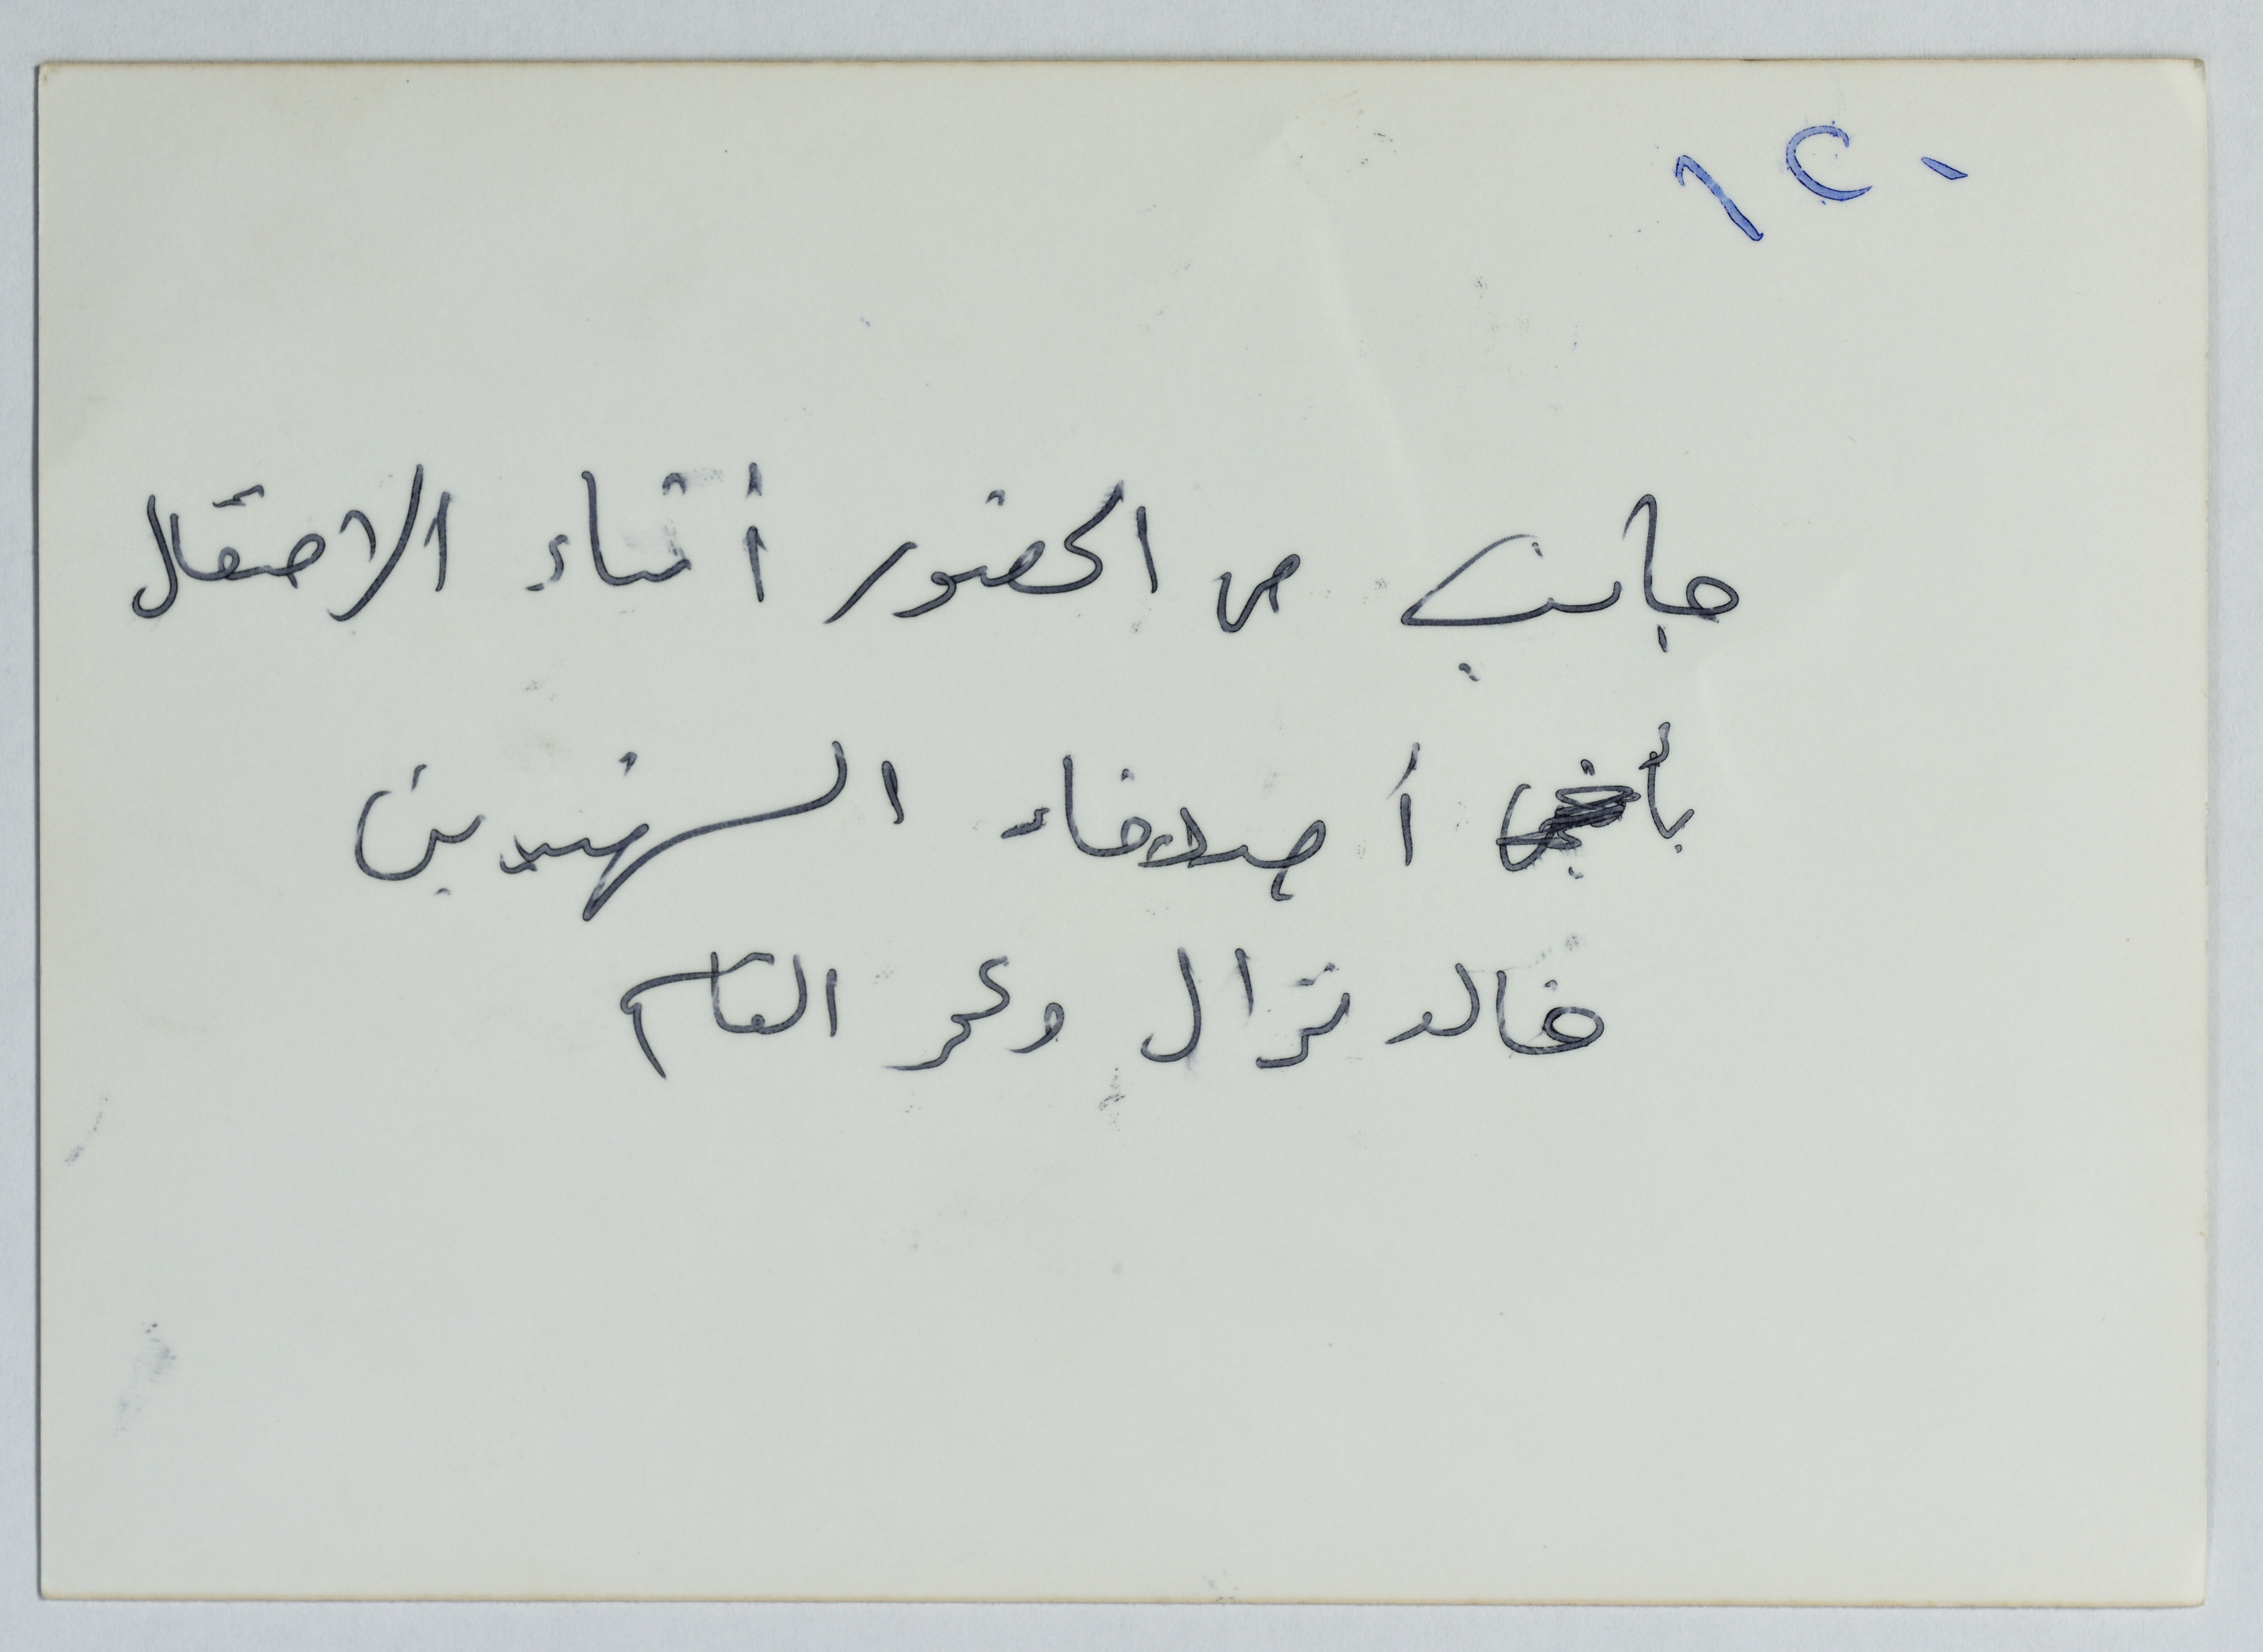 ١٢٠
جانب من الحضور أثناء الاحتفال
أصدقاء الشهيدين
خالد نزال وعمر القاسم